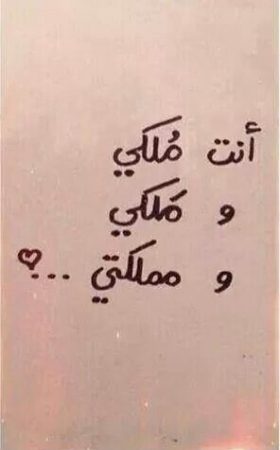 أنت مُلكي
و مَلكي
و مملكتي ...♡